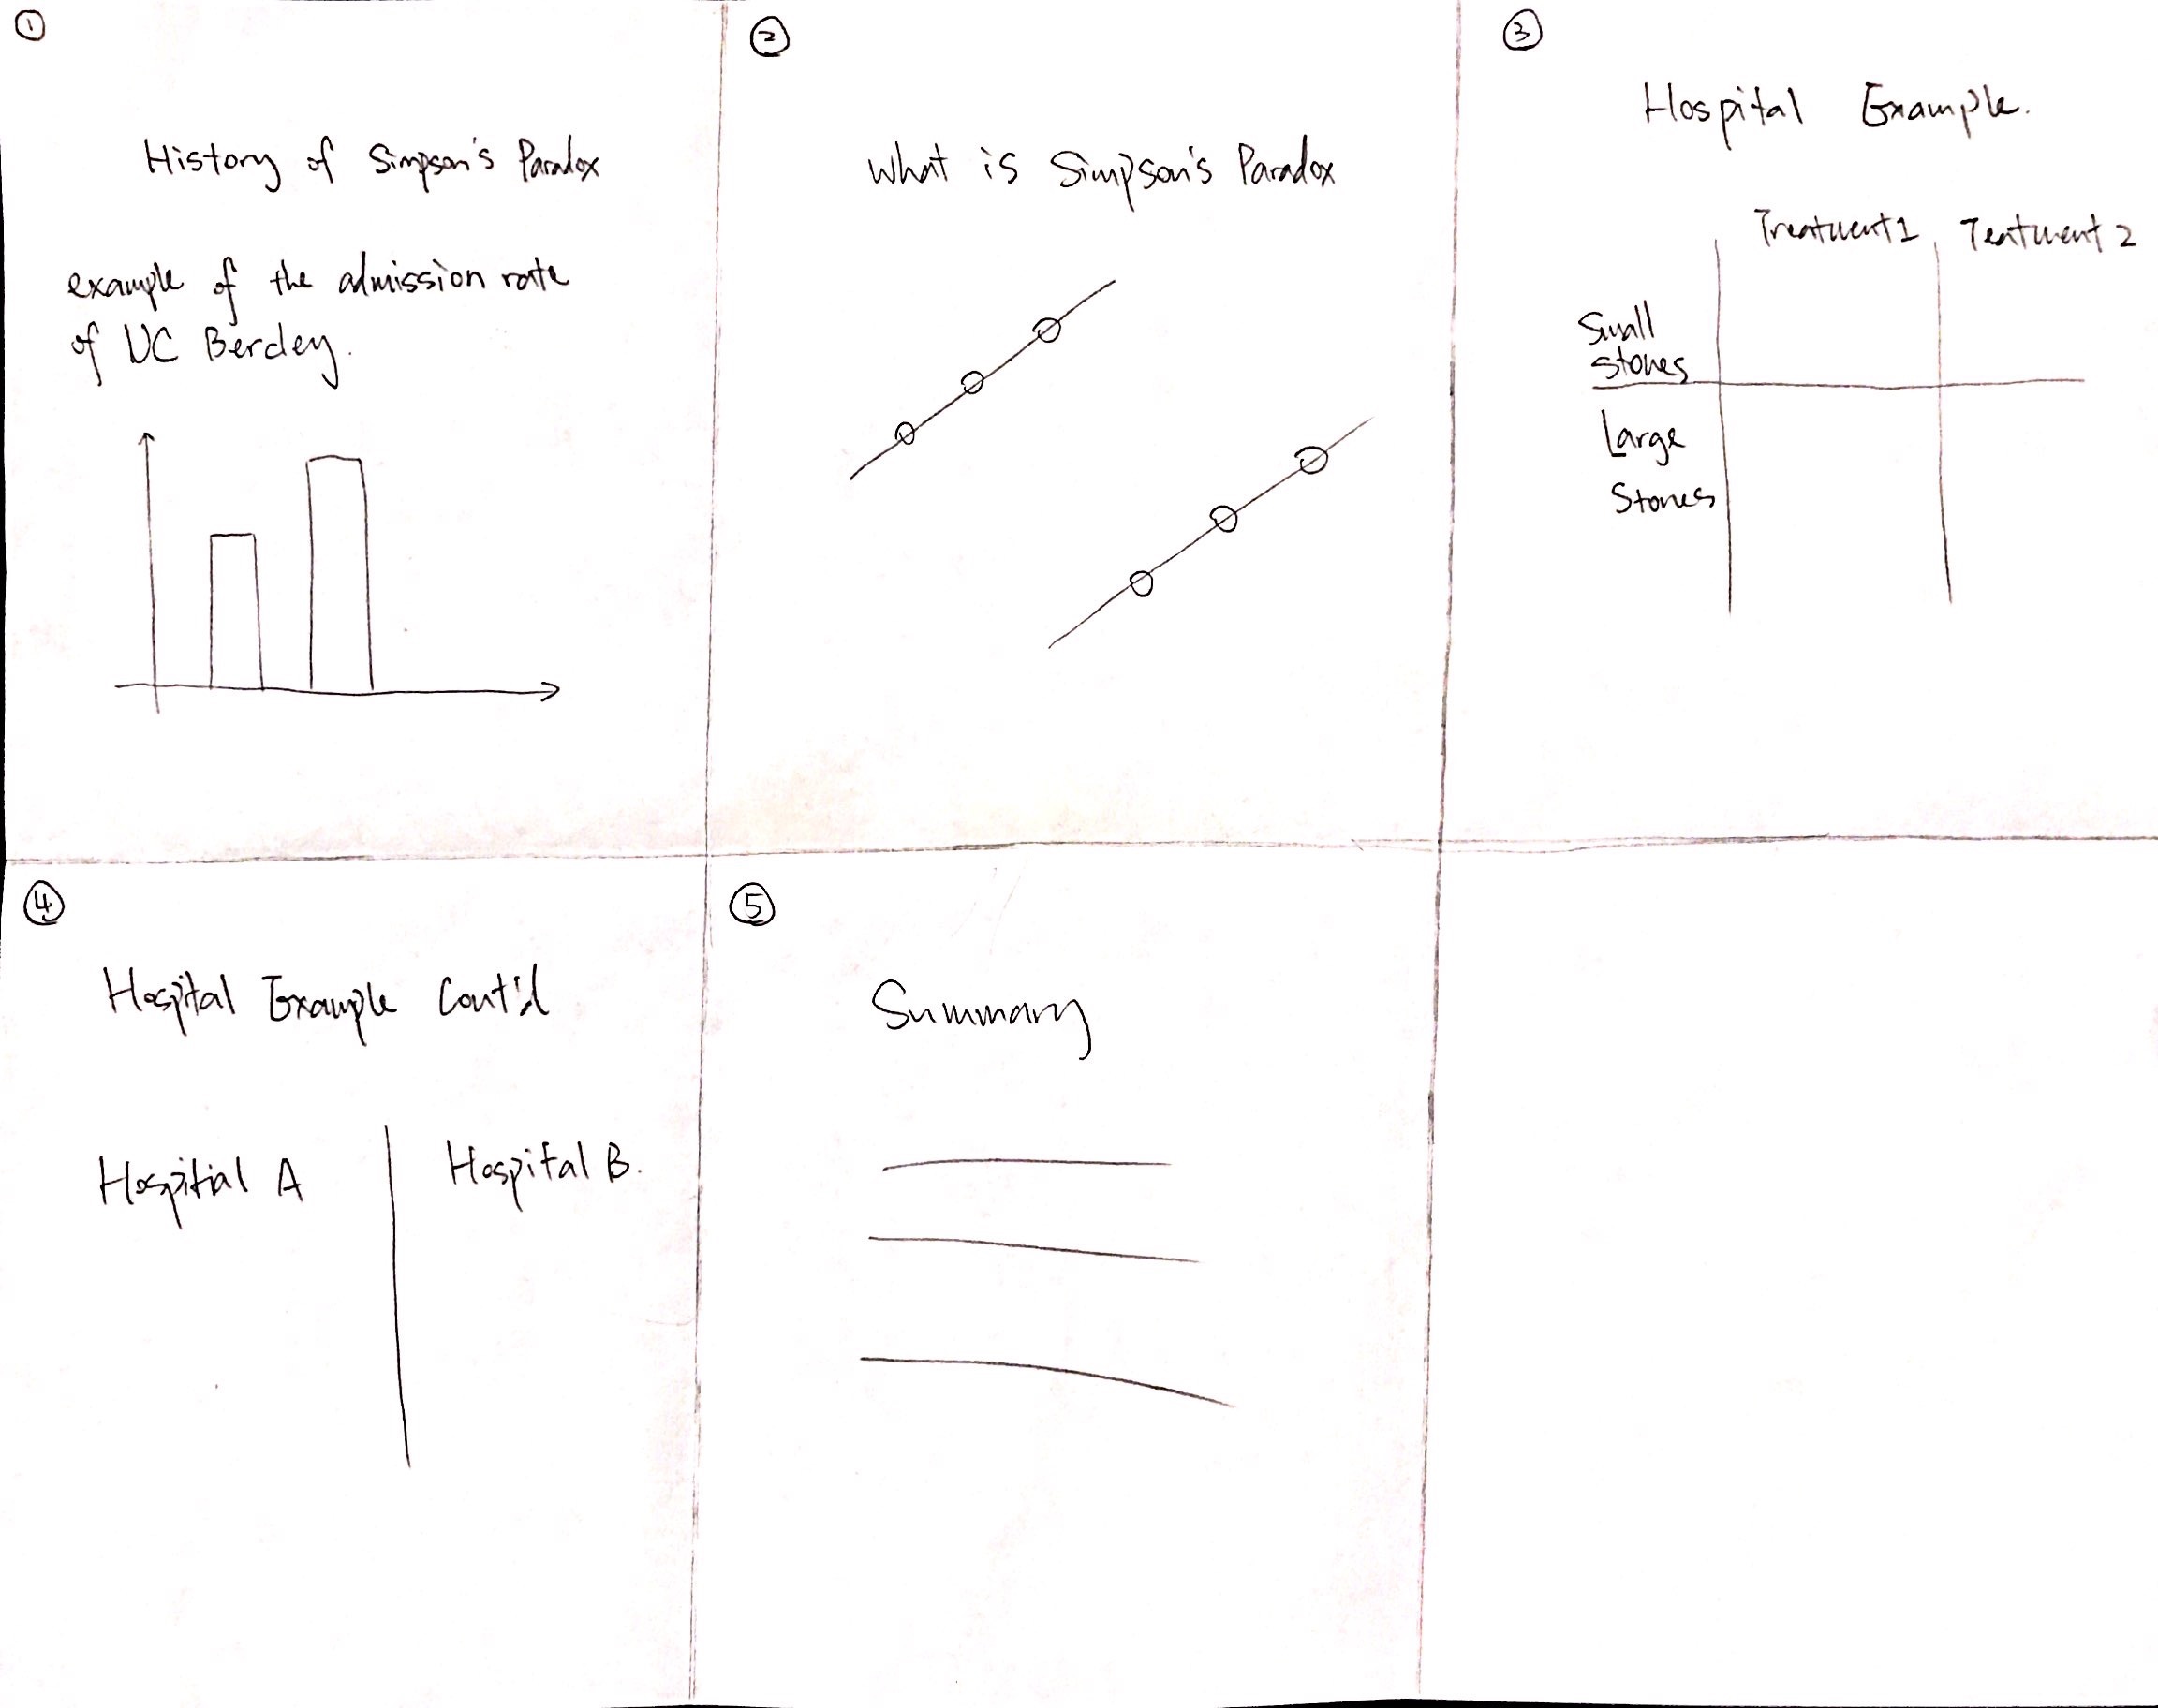 ①
History of Simpson's Paradox
example of the admission rate
of UC Bercley.
②
What is Simpson's Paradox
③
Hospital Example.
Treatment 1 Teatment 2
Small
stones
Large
Stones
④
Hospital Example Cont'd
Hospitial A
Hospital B.
⑤
Summary